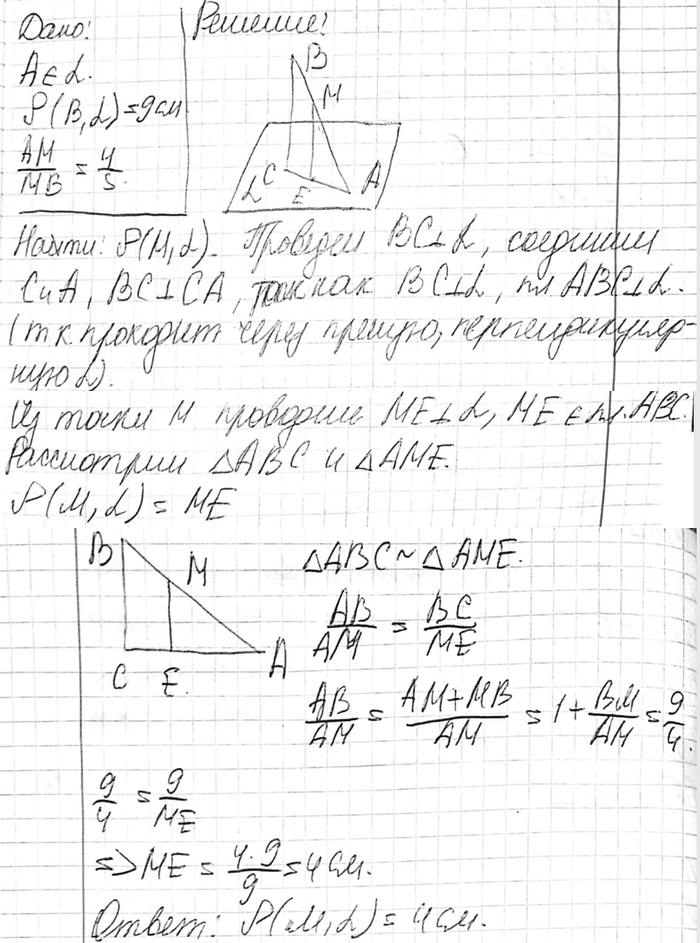 Дано:
Решение:
A ∈ α.
ρ(B, α) = 9 см
AM/MB = 4/5.
B
M
C
E
A
α
Найти: ρ(M, α). Проведем BC⊥α, соединим
C и A, BC⊥CA, так как BC⊥α, пл ABC⊥α.
(т.к. проходит через прямую, перпендикуляр-
ную α).
Из точки M проводим ME⊥α, ME ∈ пл. ABC.
Рассмотрим △ABC и △AME.
ρ(M, α) = ME
B
M
C
E.
A
△ABC ~ △AME.
AB/AM = BC/ME
AB/AM = (AM+MB)/AM = 1 + BM/AM = 9/4.
9/4 = 9/ME
=> ME = (4·9)/9 = 4 см.
Ответ: ρ(M, α) = 4 см.